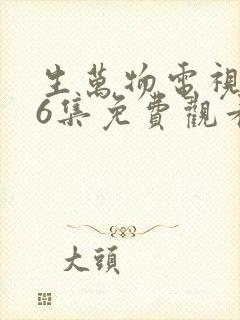 生萬物電視
6集免費觀看
大頭